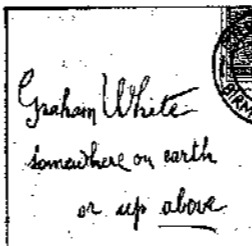 Graham White
somewhere on earth
or up above
BIRM